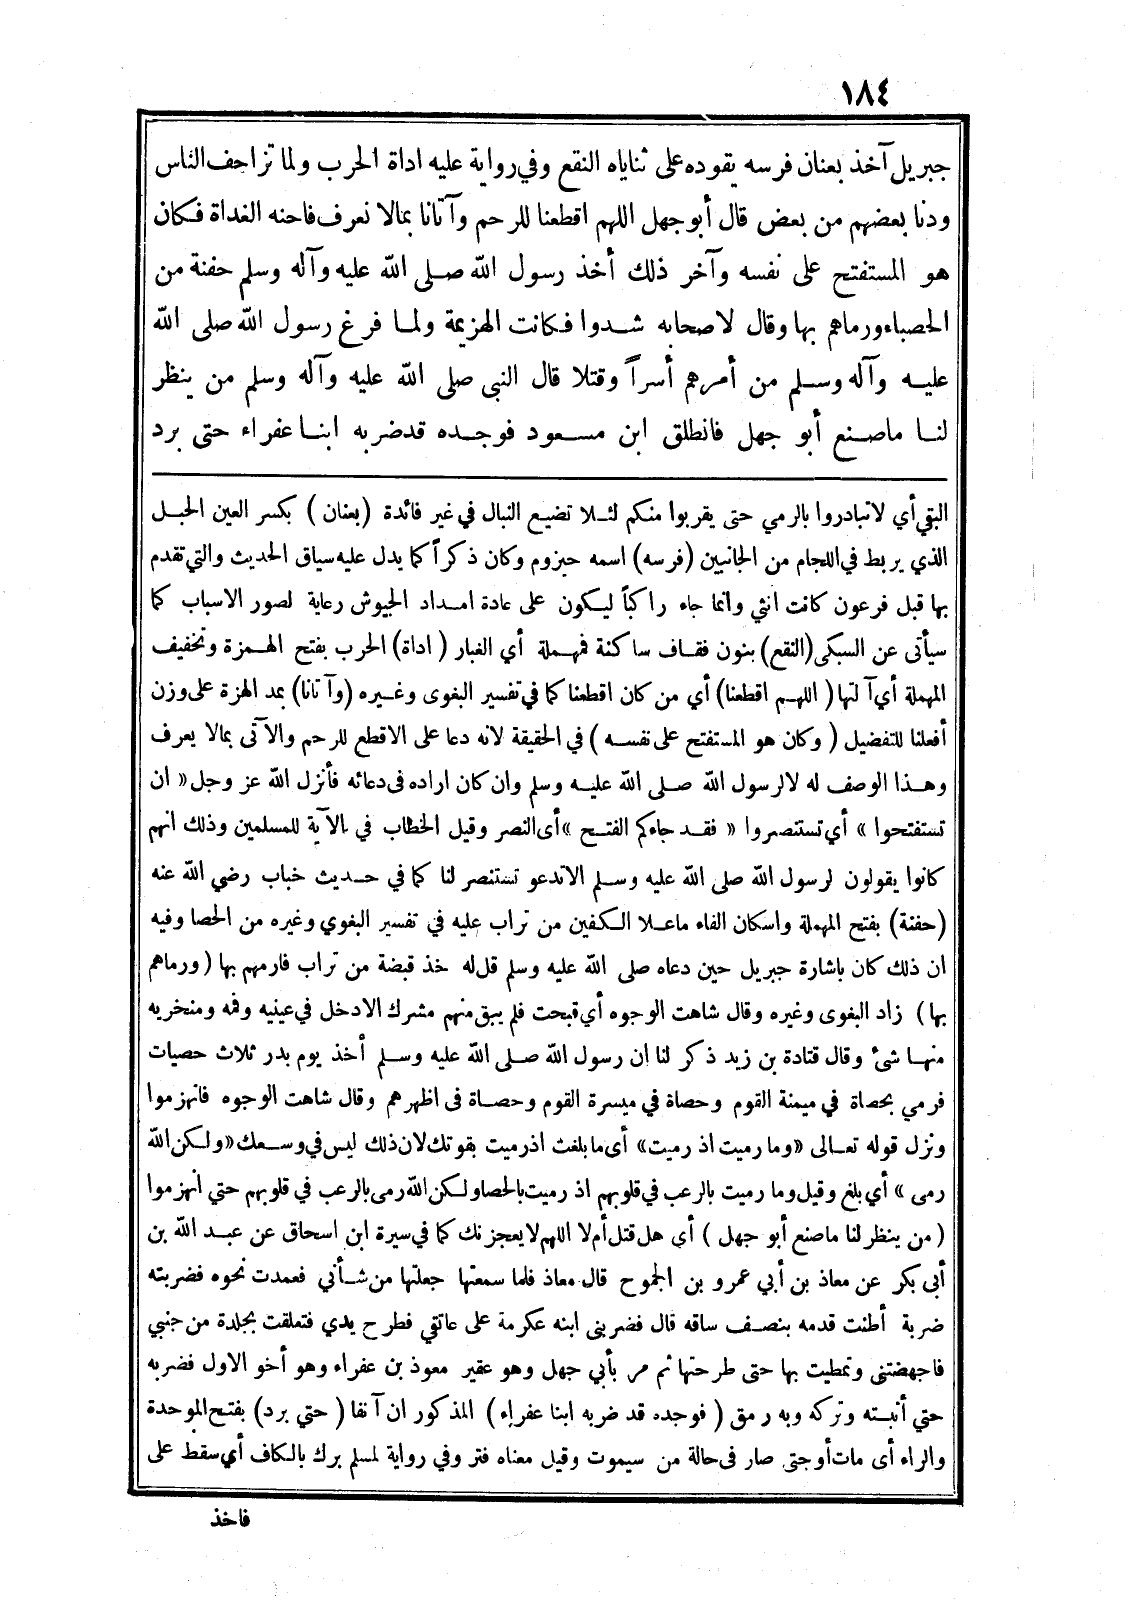 ١٨٤
جبريل آخذ بعنان فرسه يقوده على ثناياه النقع وفي رواية عليه اداة الحرب ولما تزاحف الناس
ودنا بعضهم من بعض قال أبو جهل اللهم اقطعنا للرحم وآتانا بمالا نعرف فاحنه الغداة فكان
هو المستفتح على نفسه وآخر ذلك أخذ رسول الله صلى الله عليه وآله وسلم حفنة من
الحصباء ورماهم بها وقال لاصحابه شدوا فكانت الهزيمة ولما فرغ رسول الله صلى الله
عليه وآله وسلم من أمرهم أسراً وقتلا قال النبى صلى الله عليه وآله وسلم من ينظر
لنا ماصنع أبو جهل فانطلق ابن مسعود فوجده قدضربه ابنا عفراء حتى برد
البقي أي لاتبادروا بالرمي حتى يقربوا منكم لئلا تضيع النبال في غير فائدة (بعنان) بكسر العين الحبل
الذي يربط في اللجام من الجانبين (فرسه) اسمه حيزوم وكان ذكراً كما يدل عليه سياق الحديث والتي تقدم
بها قبل فرعون كانت انثي وانما جاء راكباً ليكون على عادة امداد الجيوش رعاية لصور الاسباب كما
سيأتى عن السبكى (النقع) بنون فقاف ساكنة فمهملة أي الغبار (اداة) الحرب بفتح الهمزة وتخفيف
المهملة أي آلتها (اللهم اقطعنا) أي من كان اقطعنا كما في تفسير البغوى وغيره (وآتانا) بمد الهزة على وزن
أفعلنا للتفضيل (وكان هو المستفتح على نفسه) في الحقيقة لانه دعا على الاقطع للرحم والآتى بمالا يعرف
وهذا الوصف له لالرسول الله صلى الله عليه وسلم وان كان اراده فى دعائه فأنزل الله عز وجل «ان
تستفتحوا» أي تستنصروا «فقد جاءكم الفتح» أى النصر وقيل الخطاب في الآية للمسلمين وذلك انهم
كانوا يقولون لرسول الله صلى الله عليه وسلم الاتدعو تستنصر لنا كما في حديث خباب رضي الله عنه
(حفنة) بفتح المهملة واسكان الفاء ماعلا الكفين من تراب عليه في تفسير البغوي وغيره من الحصا وفيه
ان ذلك كان باشارة جبريل حين دعاه صلى الله عليه وسلم قل له خذ قبضة من تراب فارمهم بها (ورماهم
بها) زاد البغوى وغيره وقال شاهت الوجوه أي قبحت فلم يبق منهم مشرك الادخل في عينيه وفمه ومنخريه
منها شئ وقال قتادة بن زيد ذكر لنا ان رسول الله صلى الله عليه وسلم أخذ يوم بدر ثلاث حصيات
فرمي بحصاة في ميمنة القوم وحصاة في ميسرة القوم وحصاة فى اظهرهم وقال شاهت الوجوه فانهزموا
ونزل قوله تعالى «وما رميت اذ رميت» أى ما بلغت اذرميت بقوتك لان ذلك ليس في وسعك «ولكن الله
رمى» أي بلغ وقيل وما رميت بالرعب في قلوبهم اذ رميت بالحصا ولكن الله رمى بالرعب في قلوبهم حتي انهزموا
(من ينظر لنا ماصنع أبو جهل) أى هل قتل أم لا اللهم لايعجزنك كما في سيرة ابن اسحاق عن عبد الله بن
أبى بكر عن معاذ بن أبي عمرو بن الجموح قال معاذ فلما سمعتها جعلتها من شأني فعمدت نحوه فضربته
ضربة أطنت قدمه بنصف ساقه قال فضربنى ابنه عكرمة على عاتقي فطرح يدي فتعلقت بجلدة من جنبي
فاجهضتنى وتمطيت بها حتى طرحتها ثم مر بأبي جهل وهو عقير معوذ بن عفراء وهو أخو الاول فضربه
حتي أثبته وتركه وبه رمق (فوجده قد ضربه ابنا عفراء) المذكور ان آنفا (حتي برد) بفتح الموحدة
والراء أى مات أوحتى صار فى حالة من سيموت وقيل معناه فتر وفي رواية لمسلم برك بالكاف أي سقط على
فاخذ